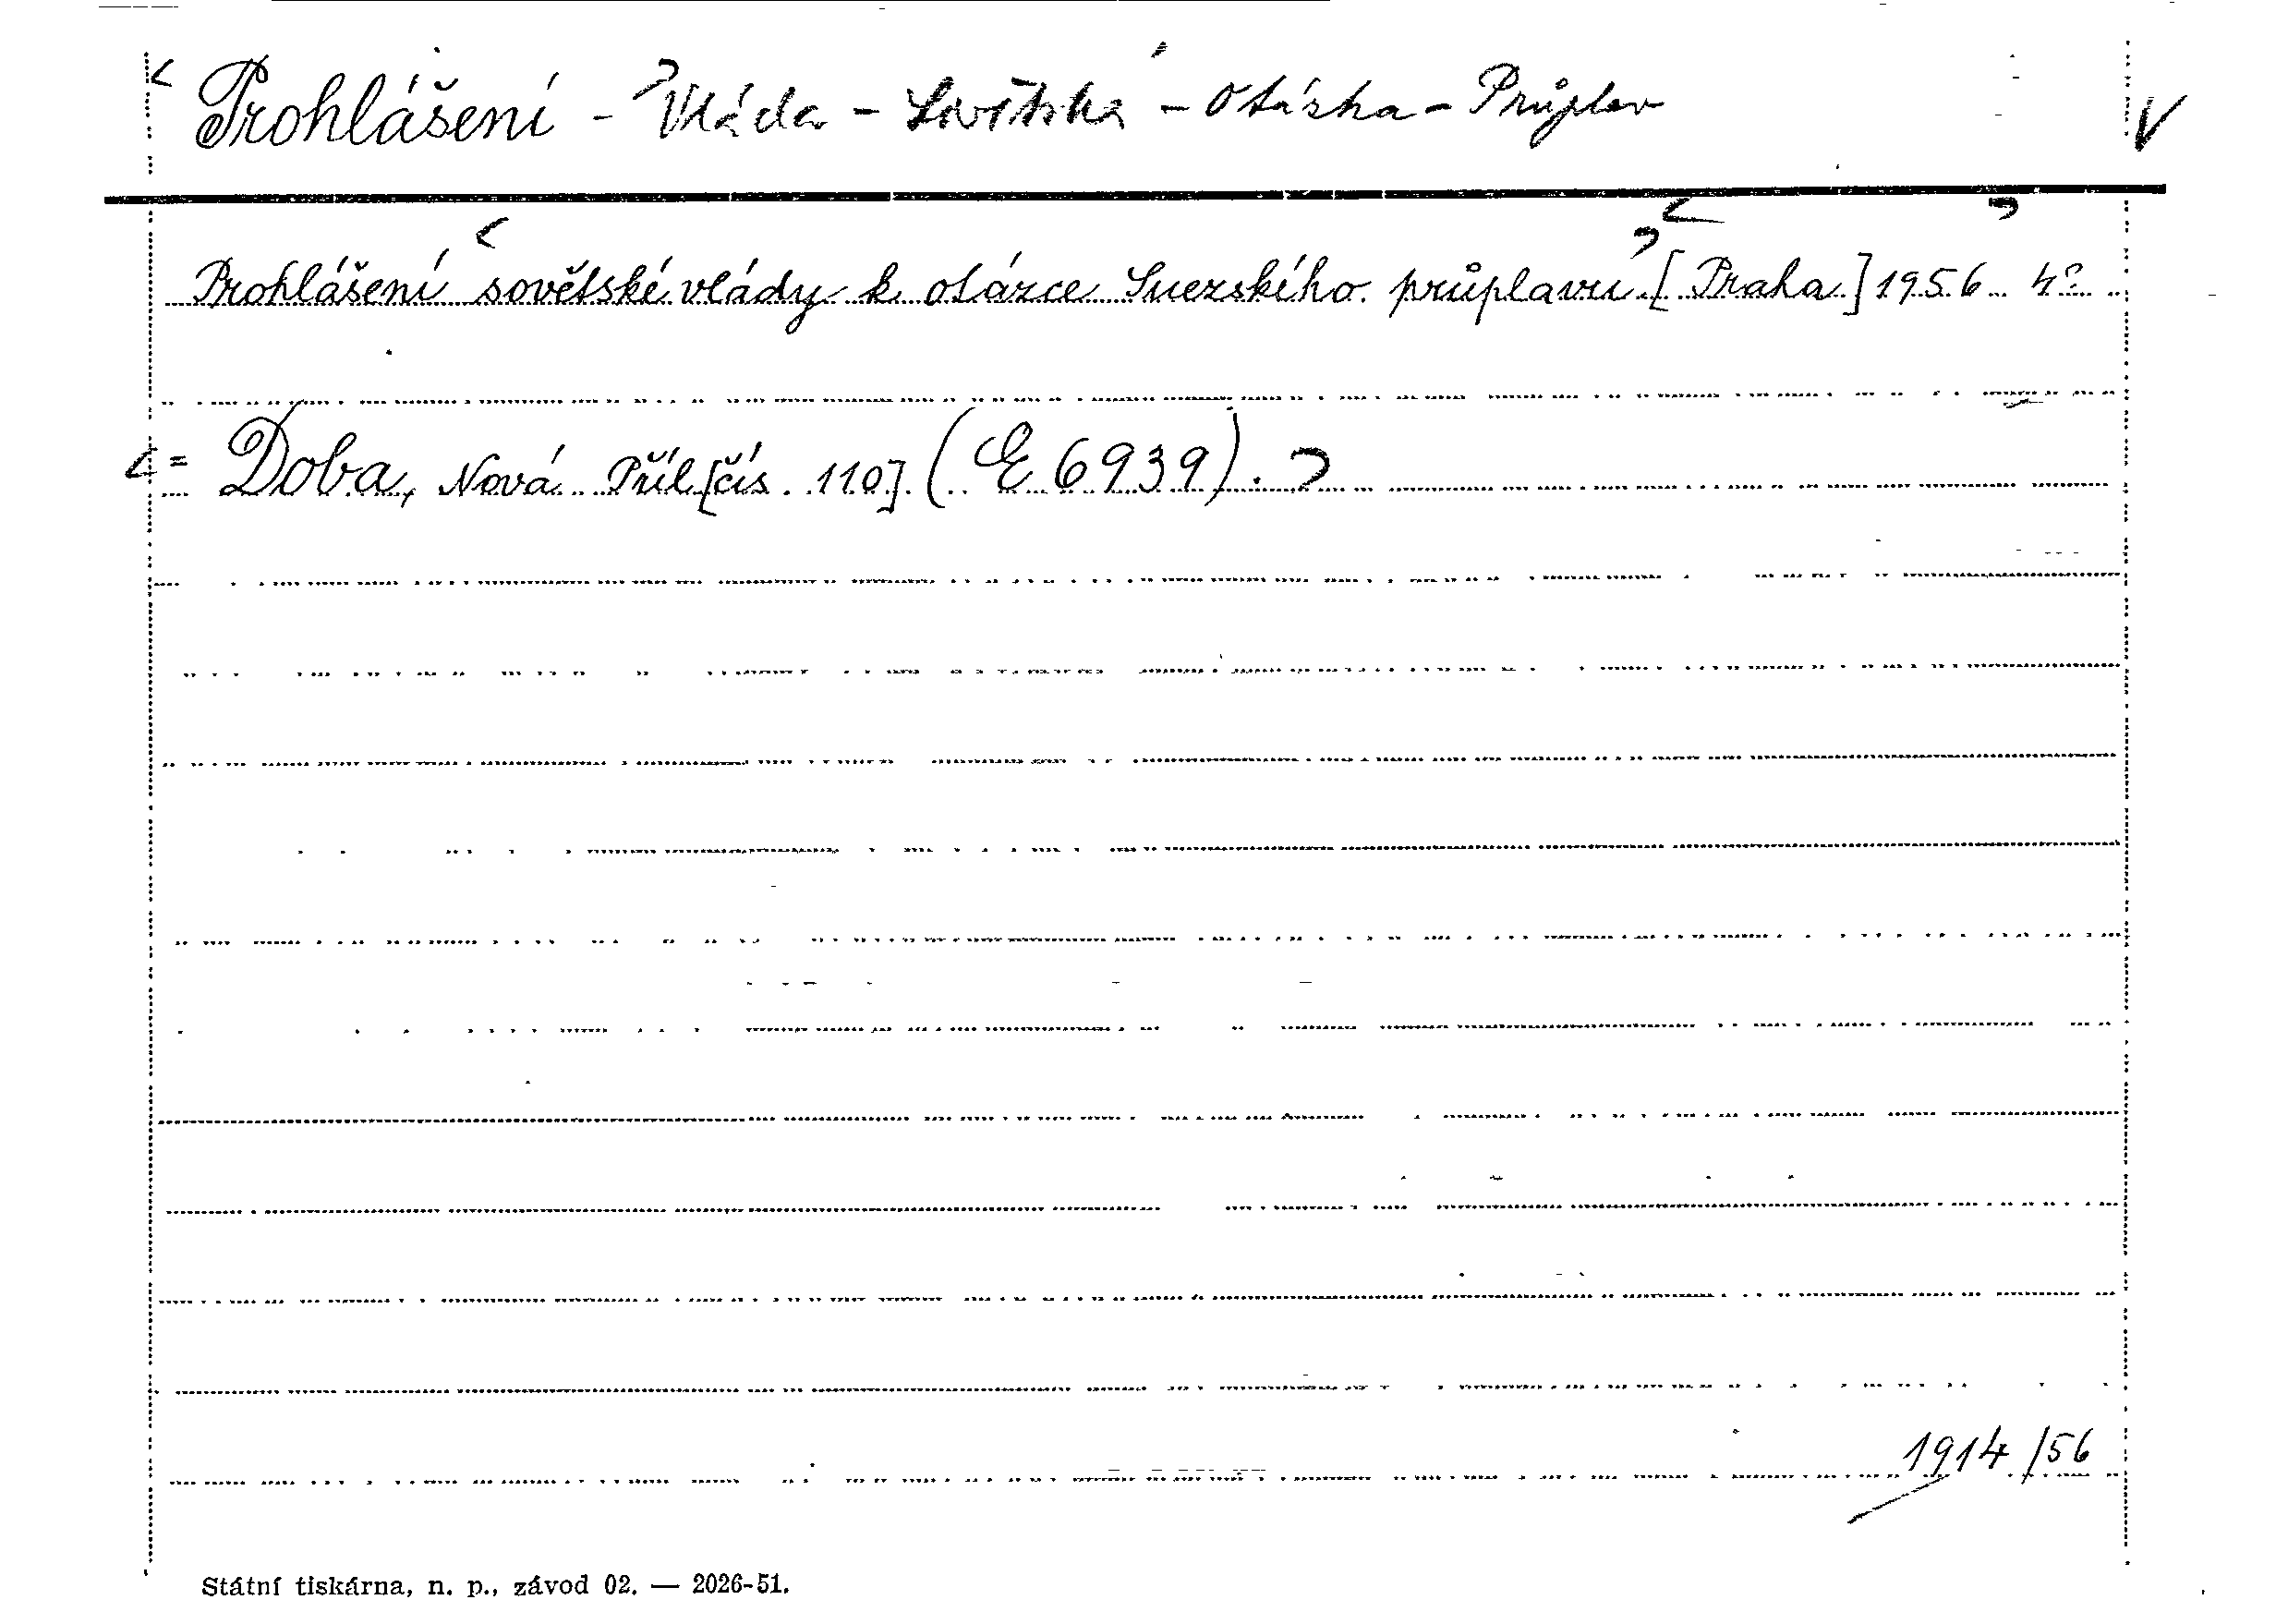 Prohlášení - Vláda - Sovětská - Otázka - Průplav V
Prohlášení sovětské vlády k otázce Suezského průplavu [Praha] 1956 4°
= Doba, Nová Příl[čís. 110]. (E 6939).
1914/56
Státní tiskárna, n. p., závod 02. — 2026-51.